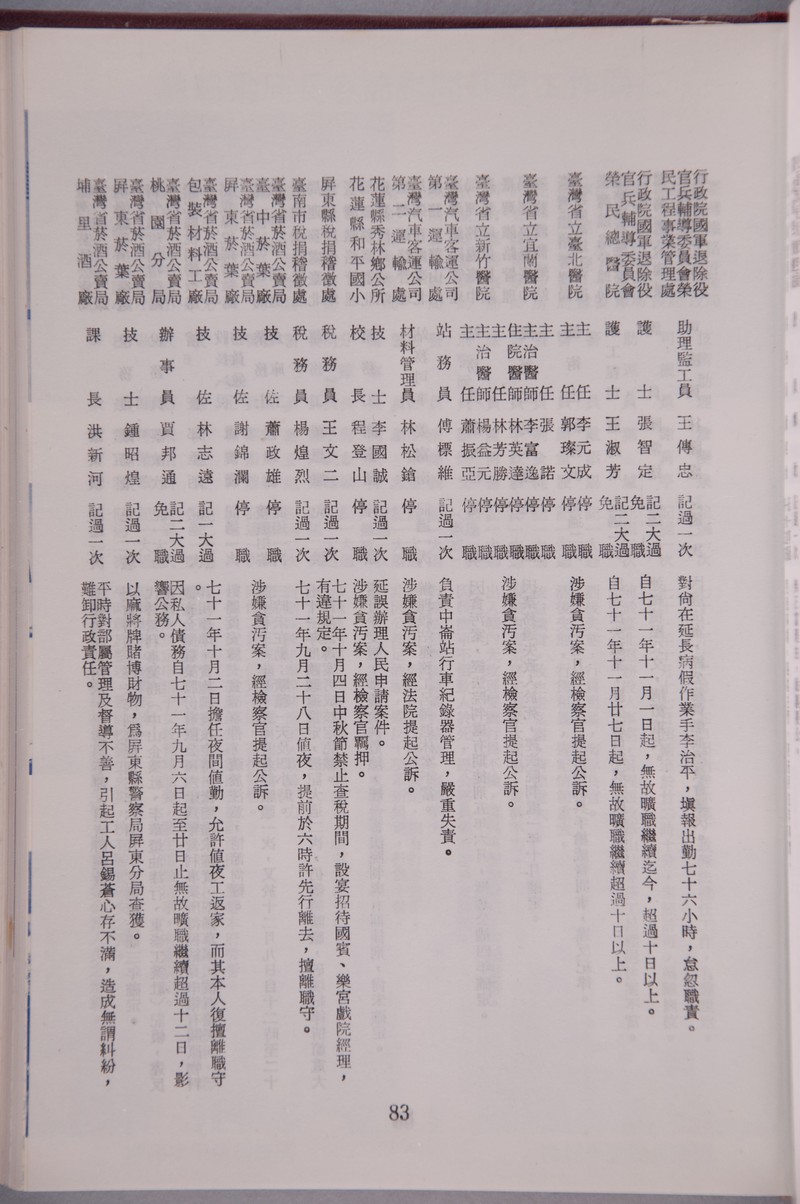 行政院國軍退除役官兵輔導委員會榮民工程事業管理處 助理監工員 王傳忠 記過一次 對尚在延長病假作業手李治平，塡報出勤七十六小時，怠忽職責。
行政院國軍退除役官兵輔導委員會榮民總醫院 護士 張智定 記二大過免職 自七十一年十一月一日起，無故曠職繼續迄今，超過十日以上。
護士 王淑芳 記二大過免職 自七十一年十一月廿七日起，無故曠職繼續超過十日以上。
臺灣省立臺北醫院 主任 李元成 停職 涉嫌貪汚案，經檢察官提起公訴。
主任 郭璨文 停職
臺灣省立宜蘭醫院 主任 張諾 停職 涉嫌貪汚案，經檢察官提起公訴。
主治醫師 李富逸 停職
住院醫師 林英達 停職
主任 林芳勝 停職
臺灣省立新竹醫院 主治醫師 楊益元 停職
主任 蕭振亞 停職
臺灣汽車客運公司第一運輸處 站務員 傅標維 記過一次 負責中崙站行車紀錄器管理，嚴重失責。
臺灣汽車客運公司第二運輸處 材料管理員 林松鎗 停職 涉嫌貪汚案，經法院提起公訴。
花蓮縣秀林鄉公所 技士 李國誠 記過一次 延誤辦理人民申請案件。
花蓮縣和平國小 校長 程登山 停職 涉嫌貪汚案，經檢察官羈押。
屏東縣稅捐稽徵處 稅務員 王文二 記過一次 七十一年十月四日中秋節禁止查稅期間，設宴招待國賓、樂宮戲院經理，有違規定。
臺南市稅捐稽徵處 稅務員 楊煌烈 記過一次 七十一年九月二十八日值夜，提前於六時許先行離去，擅離職守。
臺灣省菸酒公賣局臺中菸葉廠 技佐 蕭政雄 停職 涉嫌貪汚案，經檢察官提起公訴。
臺灣省菸酒公賣局屏東菸葉廠 技佐 謝錦瀾 停職
臺灣省菸酒公賣局包裝材料工廠 技佐 林志遠 記一大過 七十一年十月二日擔任夜間値勤，允許値夜工返家，而其本人復擅離職守。
臺灣省菸酒公賣局桃園分局 辦事員 賈邦通 記二大過免職 因私人債務自七十一年九月六日起至廿日止無故曠職繼續超過十二日，影響公務。
臺灣省菸酒公賣局屏東菸葉廠 技士 鍾昭煌 記過一次 以麻將牌賭博財物，爲屏東縣警察局屏東分局查獲。
臺灣省菸酒公賣局埔里酒廠 課長 洪新河 記過一次 平時對部屬管理及督導不善，引起工人呂錫蒼心存不滿，造成無謂糾紛，難卸行政責任。
83